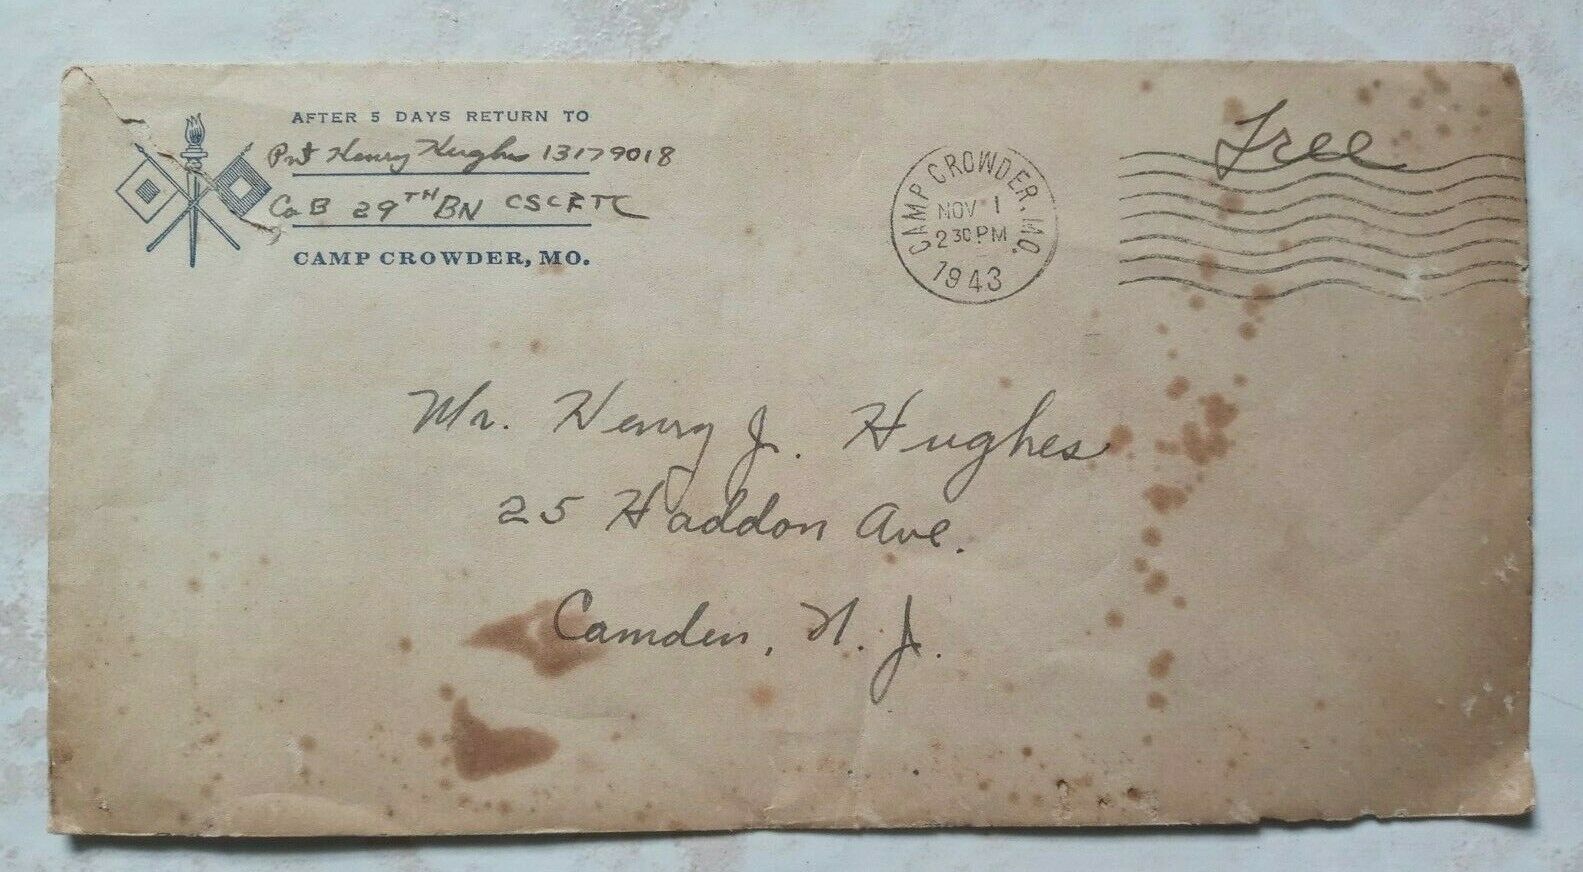 AFTER 5 DAYS RETURN TO
Pvt Henry Hughes 13179018
Co B 29TH BN CSCRTC
CAMP CROWDER, MO.
CAMP CROWDER, MO.
NOV 1
2 30 PM
1943
Free
Mr. Henry J. Hughes
25 Haddon Ave.
Camden, N. J.